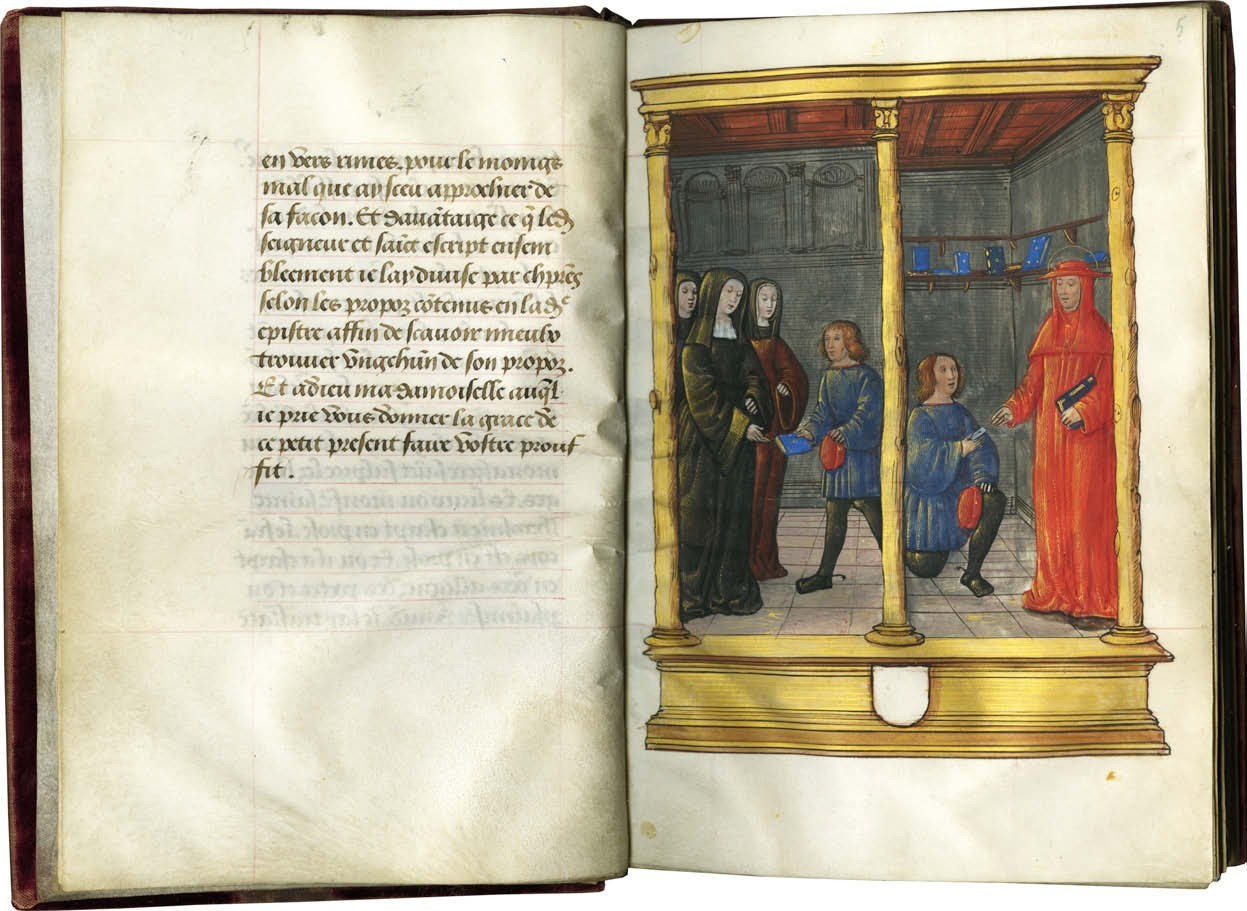 en vers rimes. pour le moings
mal que ay sceu approchier de
sa facon. Et davātaige ce q̄ led
seigneur et saīct escript ensem
blement ie lay divise par chp̄res
selon les propoz cōtenus en lad e
epistre affin de scavoir mieulx
trouver vng chūn de son propoz.
Et adieu ma damoiselle auq̄l
ie prie vous donner la grace de
ce petit present faire vostre prouf
fit.
5